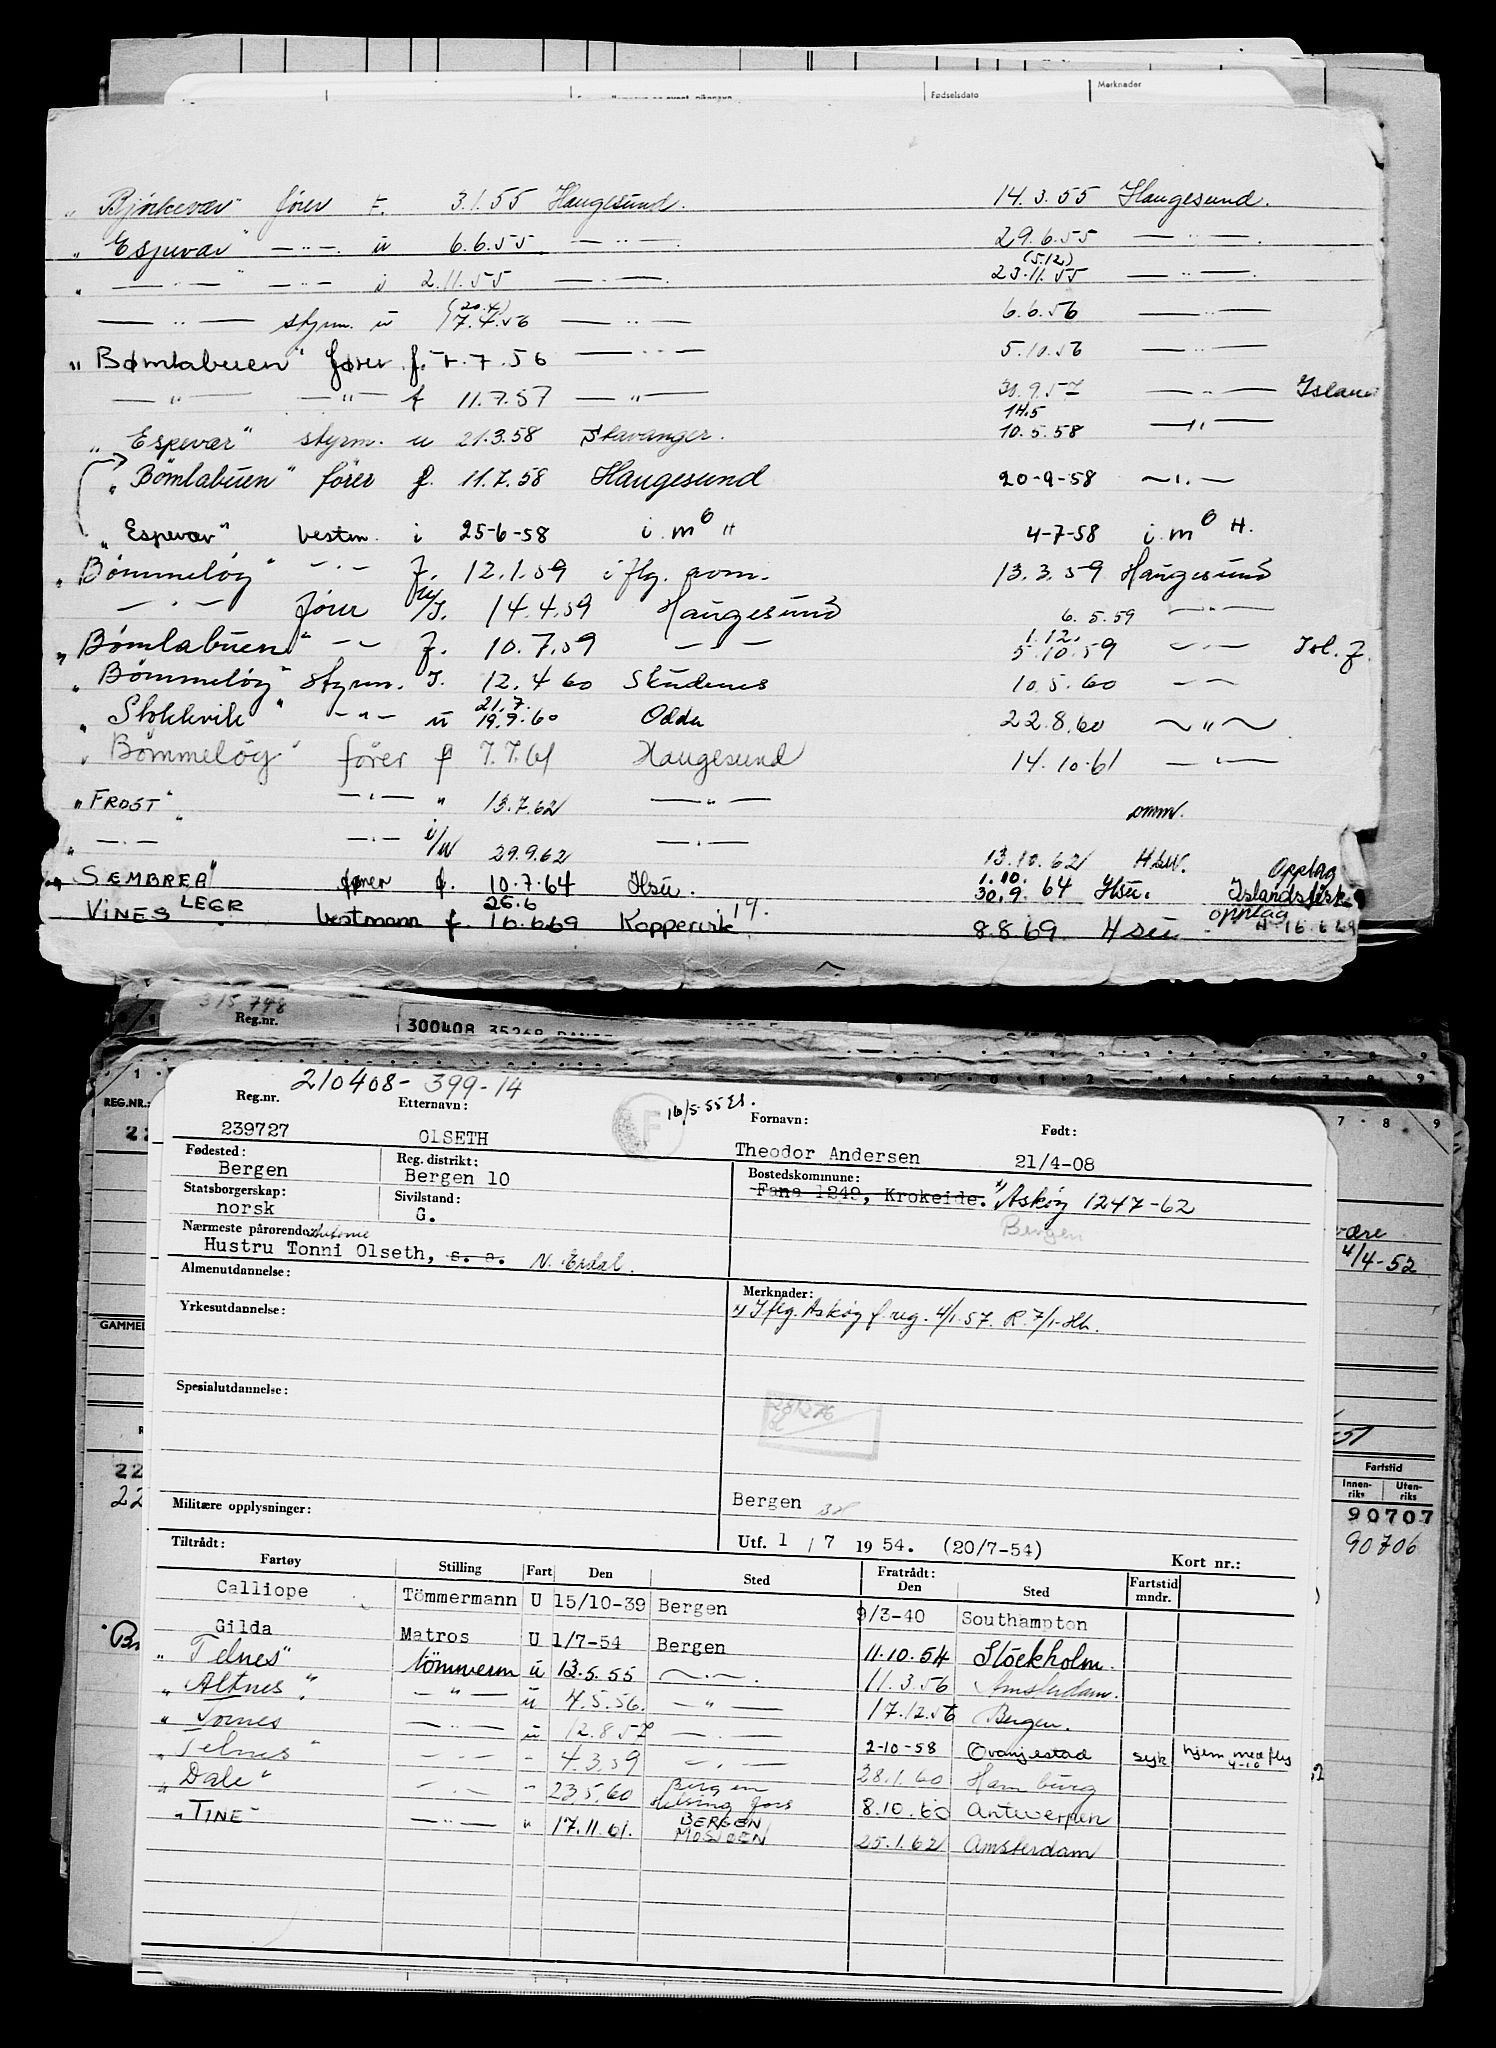 Fødselsdato
Merknader
" Bjørkevær" fører F. 3.1.55 Haugesund. 14.3.55 Haugesund.
" Espevær" — " — u 6.6.55 — " — 29.6.55 — " —
" — " — — " — i 2.11.55 — " — (5.12) 23.11.55 — " —
— " — styrm. u (20.4) 17.4.56 — " — 6.6.56 — " —
" Bømlabuen" fører f. 7.56 — " — 5.10.56 — " —
— " — — " — f 11.7.57 — " — 30.9.57 — " — Island
" Espevær" styrm. u 21.3.58 Stavanger. 14.5 10.5.58 — " —
" Bömlabuen" förer f. 11.7.58 Haugesund 20-9-58 — " —
" Espevær" bestm. i 25-6-58 i. m° H 4-7-58 i. m° H.
" Bømmeløy" — " — F. 12.1.59 i flg. avm. 13.3.59 Haugesund
— " — fører 14.4.59 Haugesund 6.5.59 — " —
" Bømlabuen" — " — F. 10.7.59 — " — 1.12. 5.10.59 — " — Isl. f.
" Bömmelöy" styrm. I. 12.4 60 Skudenes 10.5.60 — " —
" Stokkvik" — " — u 21.7. 19.9.60 Odda 22.8.60 — " —
" Bömmelöy" förer f 7.7.61 Haugesund 14.10.61 — " —
" FROST" — " — " 13.7.62 — " — omm.
" — " — — " — i/u 29.9.62 — " — 13.10.62 Hsu.
" SEMBREA" fører f. 10.7.64 Hsu. 1.10. 30.9.64 Hsu. Opplag Islandsfisk
VINES LEGR bestmann f. 26.6 16.6.69 Koppervik 19. 8.8.69 Hsu. opplag H 16.6.69
315.748
Reg.nr.
300408 35268
REG.NR.:
210408- 399-14
Reg.nr. Etternavn: F 16/5-55 El. Fornavn: Født:
239727 OLSETH Theodor Andersen 21/4-08
Fødested: Reg. distrikt: Bostedskommune:
Bergen Bergen 10 Fana 1249, Krokeide. 1) Askøy 1247-62
Statsborgerskap: Sivilstand:
norsk G. Bergen
Nærmeste pårørende:
Hustru Tonni Olseth, s. a. N. Erdal.
Almenutdannelse: Merknader:
1) Iflg. Askøy f.reg. 4/1.57. R. 7/1-Hh.
Yrkesutdannelse:
Spesialutdannelse:
Bergen
Militære opplysninger: Utf. 1 / 7 1954. (20/7-54)
Tiltrådt: Fratrådt: Kort nr.:
Fartøy Stilling Fart Den Sted Den Sted Fartstid mndr.
Calliope Tömmermann U 15/10-39 Bergen 9/3-40 Southampton
Gilda Matros U 1/7-54 Bergen 11.10.54 Stockholm.
" Telnes" tömmerm u 13.5.55 — " — 11.3.56 Amsterdam.
" Altnes" — " — u 4.5.56. — " — 17.12.56 Bergen.
" Tornes — " — u 12.8.57 — " — 2-10-58 Oranjestad syk hjem med fly 4-10
" Telnes" — " — - 4.3.59 — " — 28.1.60 Hamburg
" Dale" — " — - 23.5.60 Bergen Helsingfors 8.10.60 Antwerpen
" TINE" — " — " 17.11.61. BERGEN MOSJØEN 25.1.62 Amsterdam
være
4/4-52
GAMMEL
Fartstid
Innen-riks Uten-riks
90707
90706